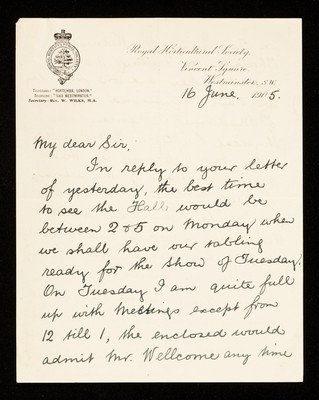 Royal Horticultural Society,
Vincent Square,
Westminster, S.W.
Telegrams: "HORTENSIA, LONDON."
Secretary—Rev. W. WILKS, M.A.
16 June 1905.
My dear Sir,
In reply to your letter
of yesterday, the best time
to see the Hall would be
between 2 & 5 on Monday when
we shall have our tabling
ready for the Show of Tuesday.
On Tuesday I am quite full
up with Meetings except from
12 till 1, the enclosed would
admit Mr. Wellcome any time